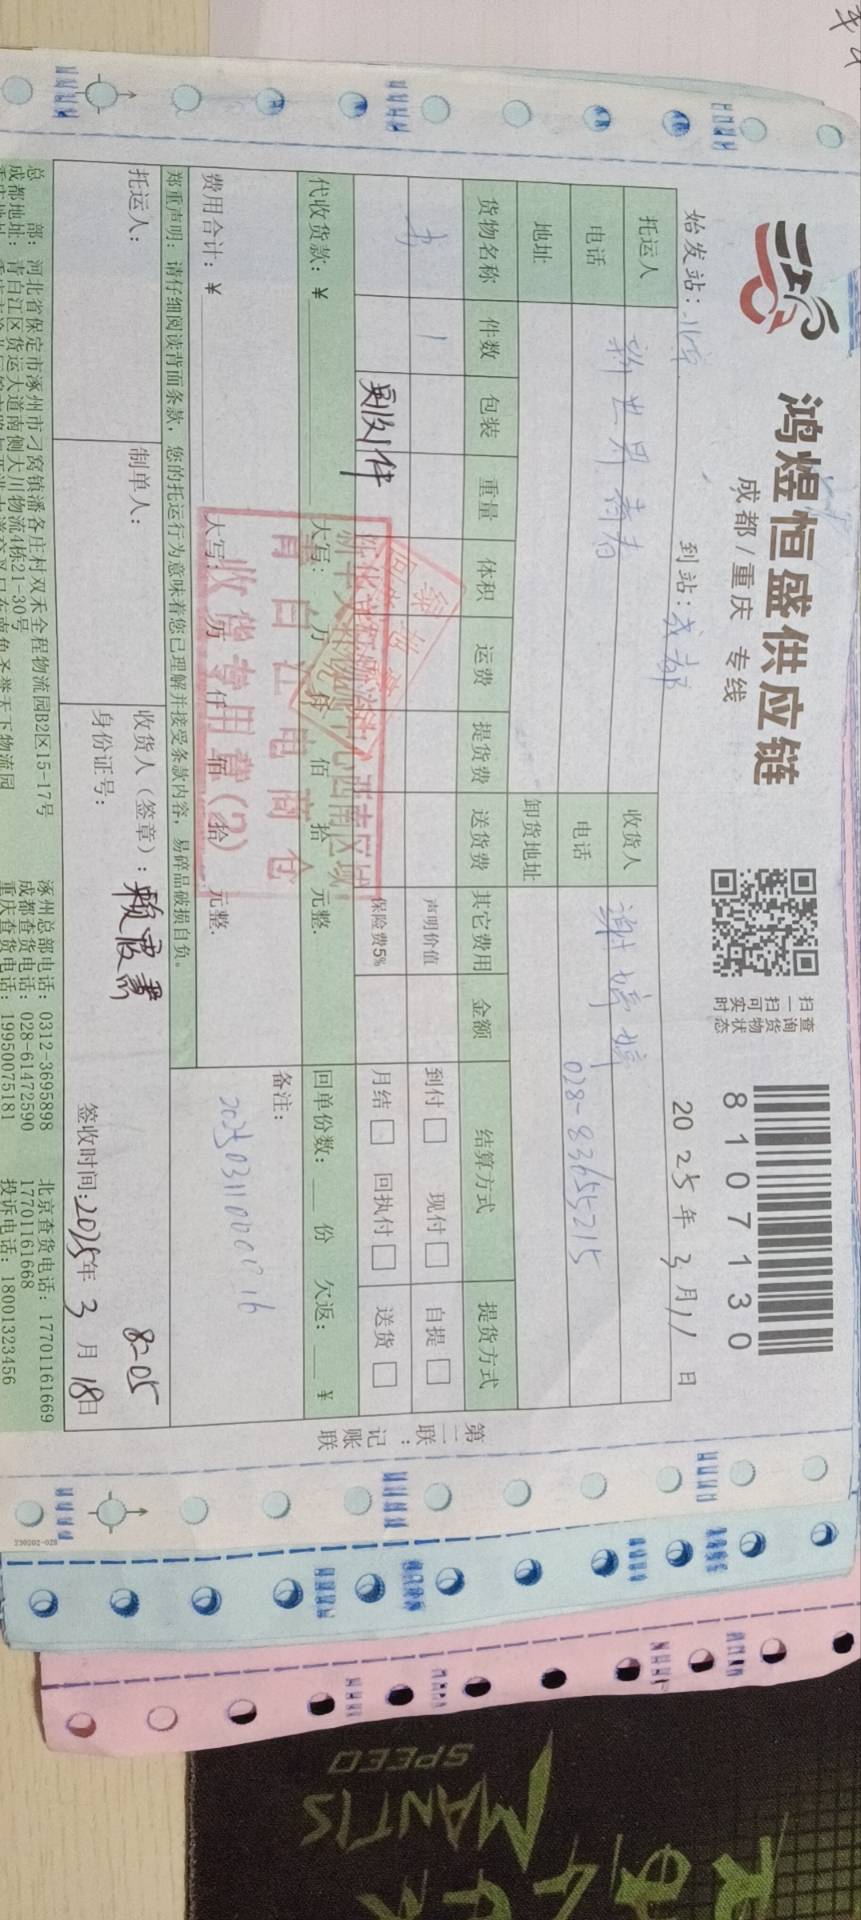 鸿煜恒盛供应链
成都/重庆 专线
扫一扫可实时
查询货物状态
8107130
始发站：北京 到站：成都 2025年3月11日
托运人 新世界青春 收货人 谢婷婷
电话 电话 028-83655215
地址 卸货地址
货物名称 件数 包装 重量 体积 运费 提货费 送货费 其它费用 金额 结算方式 提货方式
书 1 声明价值 到付□ 现付□ 自提□
剔除件 保险费5% 月结□ 回执付□ 送货□
代收货款：¥ 大写： 万 仟 佰 拾 元整. 回单份数： 份 欠返： ¥
费用合计：¥ 大写： 万 仟 佰 拾 元整.
备注：
郑重声明：请仔细阅读背面条款，您的托运行为意味着您已理解并接受条款内容，易碎品破损自负。
托运人： 制单人： 收货人（签章）：赖霞 8-05
身份证号： 签收时间：2025年3月18日
总 部：河北省保定市涿州市刁窝镇潘各庄村双禾全程物流园B2区15-17号 涿州总部电话：0312-3695898 北京查货电话：17701161669
成都地址：青白江区货运大道南侧大川物流4栋21-30号 成都查货电话：028-61472590 17701161668
重庆查货电话：19950075181 投诉电话：18001323456
第二联：记账联
西南区域
青白江电商仓
收货专用章(2)
MANTIS
SPEED